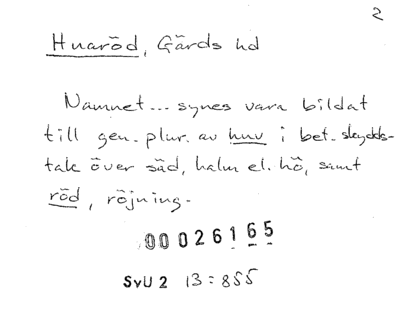 2
Huaröd, Gärds hd
Namnet... synes vara bildat
till gen. plur. av huv i bet. skydds-
tak över säd, halm el. hö, samt
röd, röjning.
00026165
SvU 2 13:855